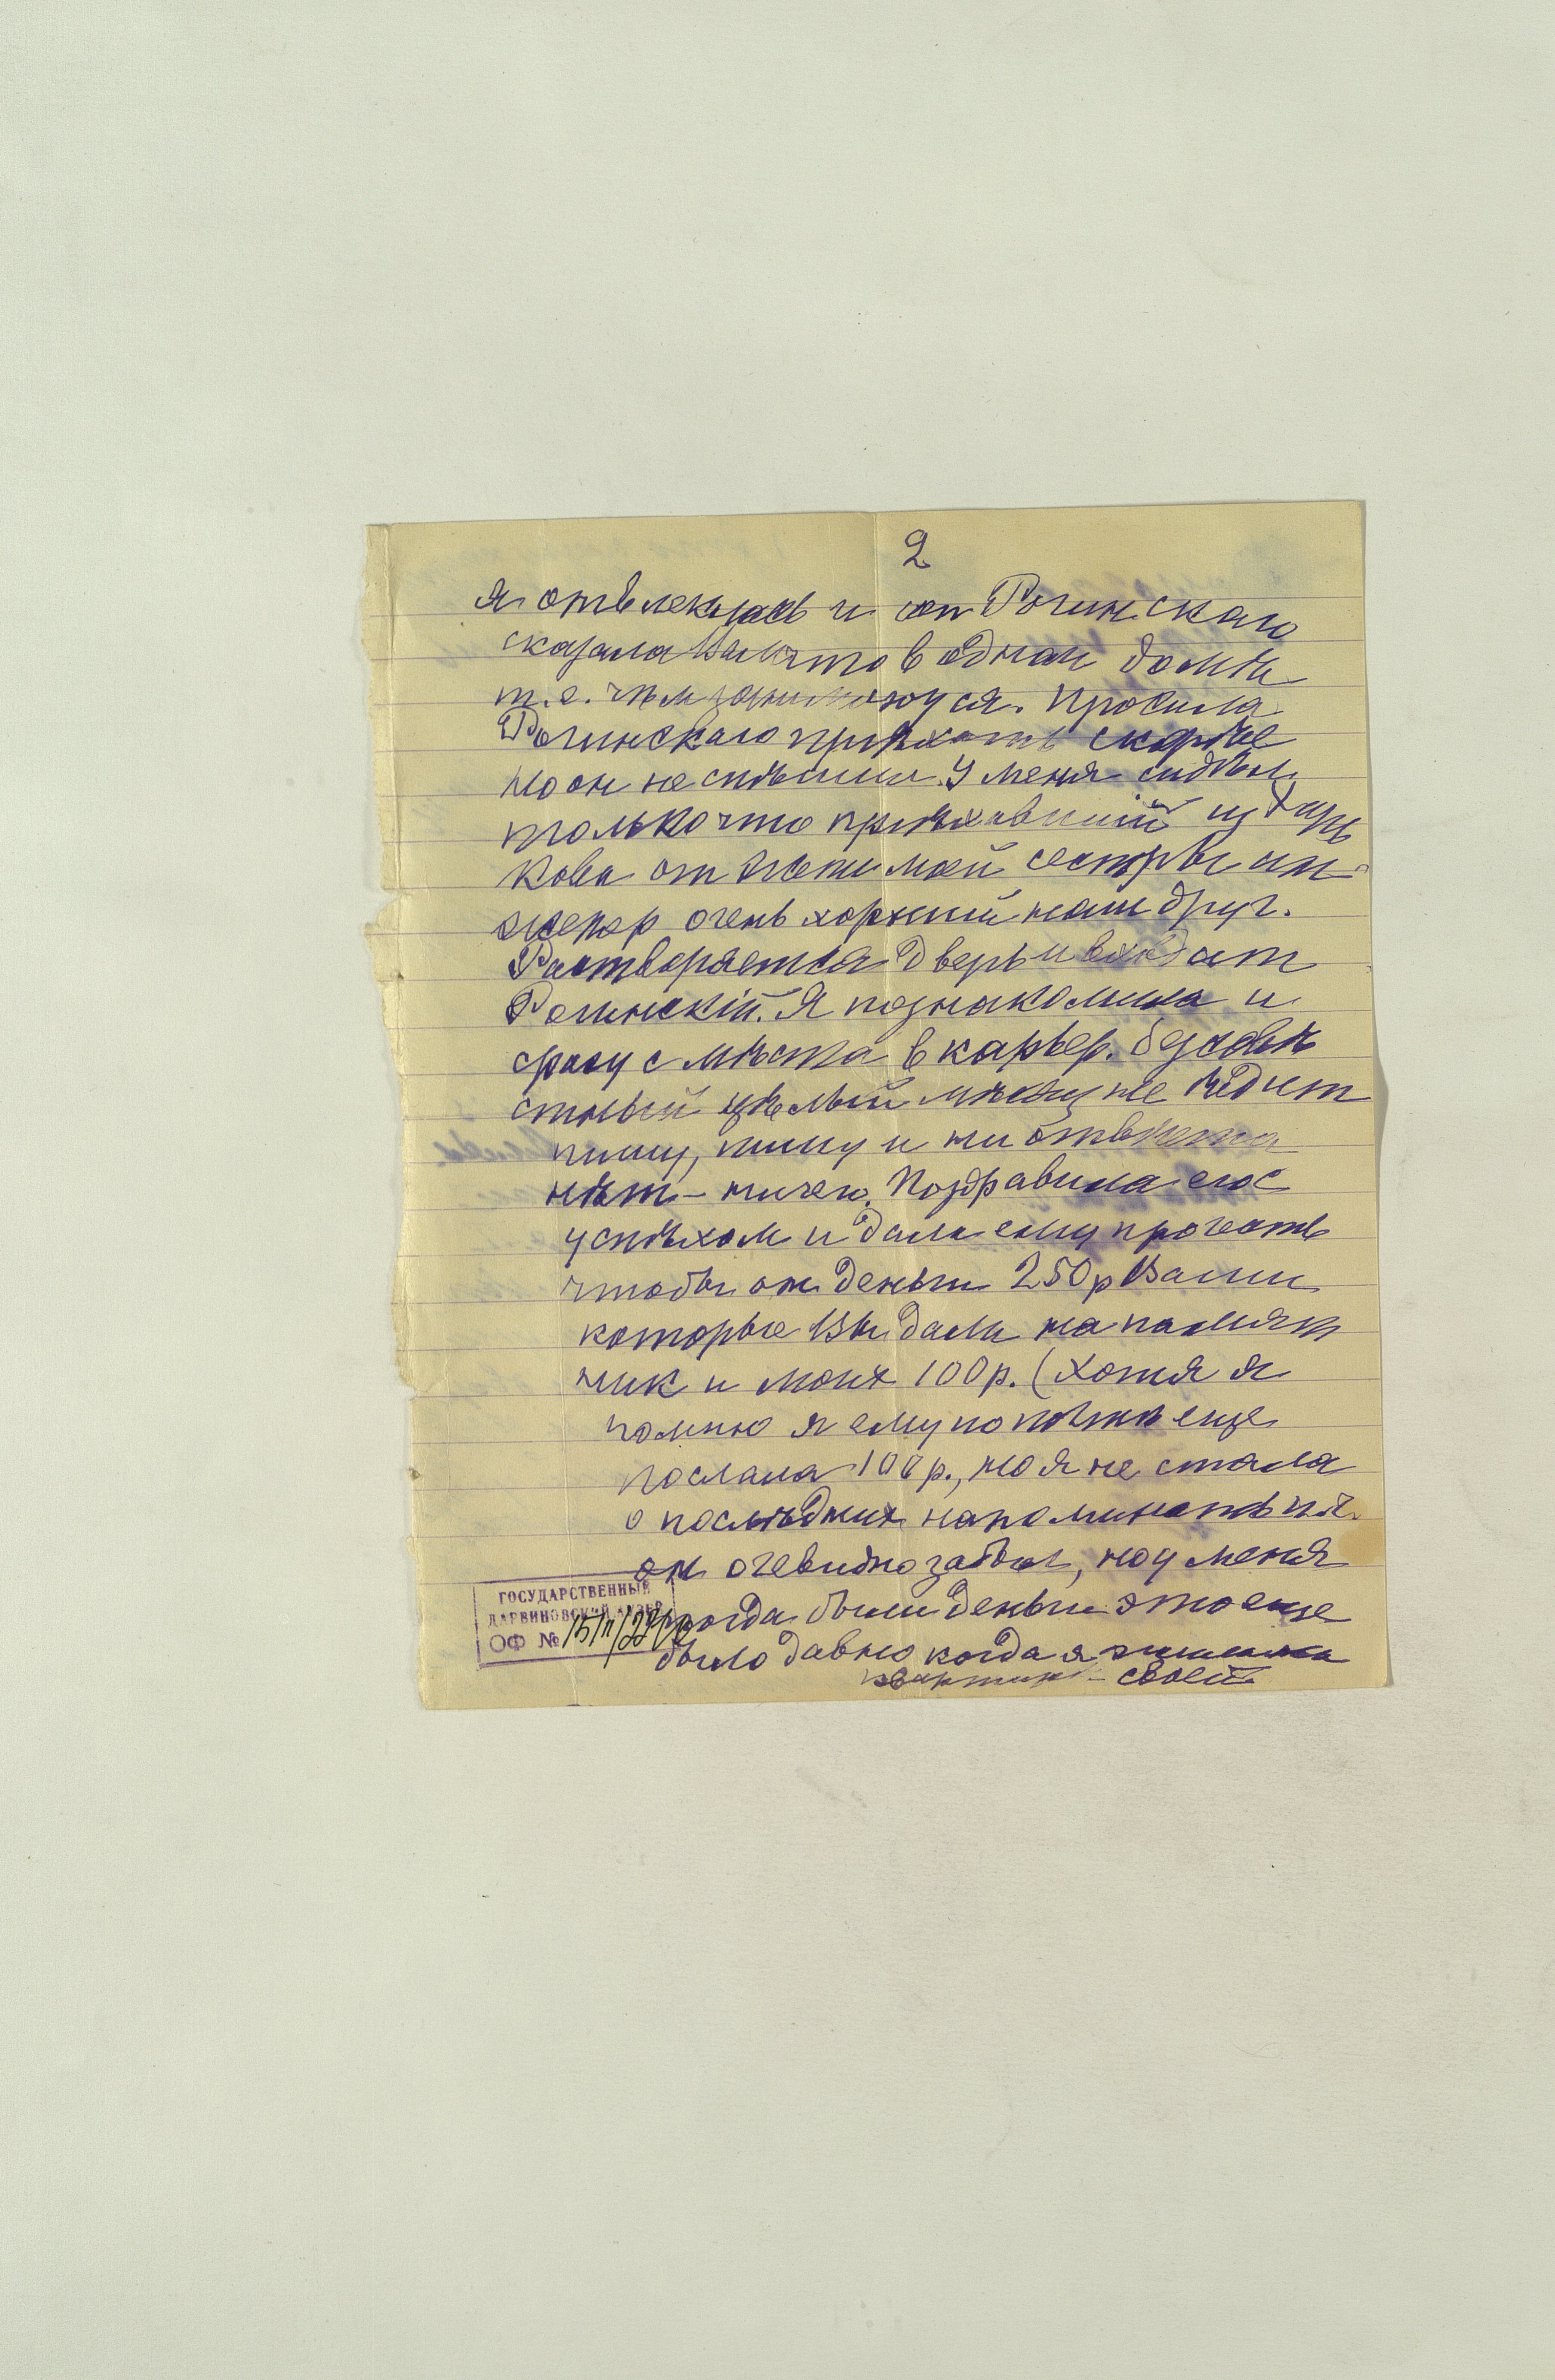 2
я отвлеклась и от Рогинскаго
сказала что в одном домѣ
т.е. чѣм занимаюуся. Просила
Рогинскаго приѣхать скорѣе
но он не спѣшил. У меня сидѣл
только что приѣхавший из Харь
кова от жены моей сестры ин-
женер очень хороший наш друг.
Растворяется дверь и входит
Рогинскій. Я познакомила и
сразу с мѣста в карьер. безсовѣ
стный цѣлый мѣсяц не ѣдит
пишу, пишу и ни отвѣта
нѣт – ничего. Поздравила его с
успѣхом и дала ему прочесть
чтобы он деньги 250р Ваши
которые Вы дали на памят
ник и моих 100р. (Хотя я
помню я ему по почтѣ еще
послала 100р., но я не стала
о послѣдних напоминать
он очевидно забыл, но у меня
тогда были деньги это еще
было давно когда я жила на
квартирѣ – своей
ГОСУДАРСТВЕННЫЙ
ДАРВИНОВСКИЙ МУЗЕЙ
ОФ №